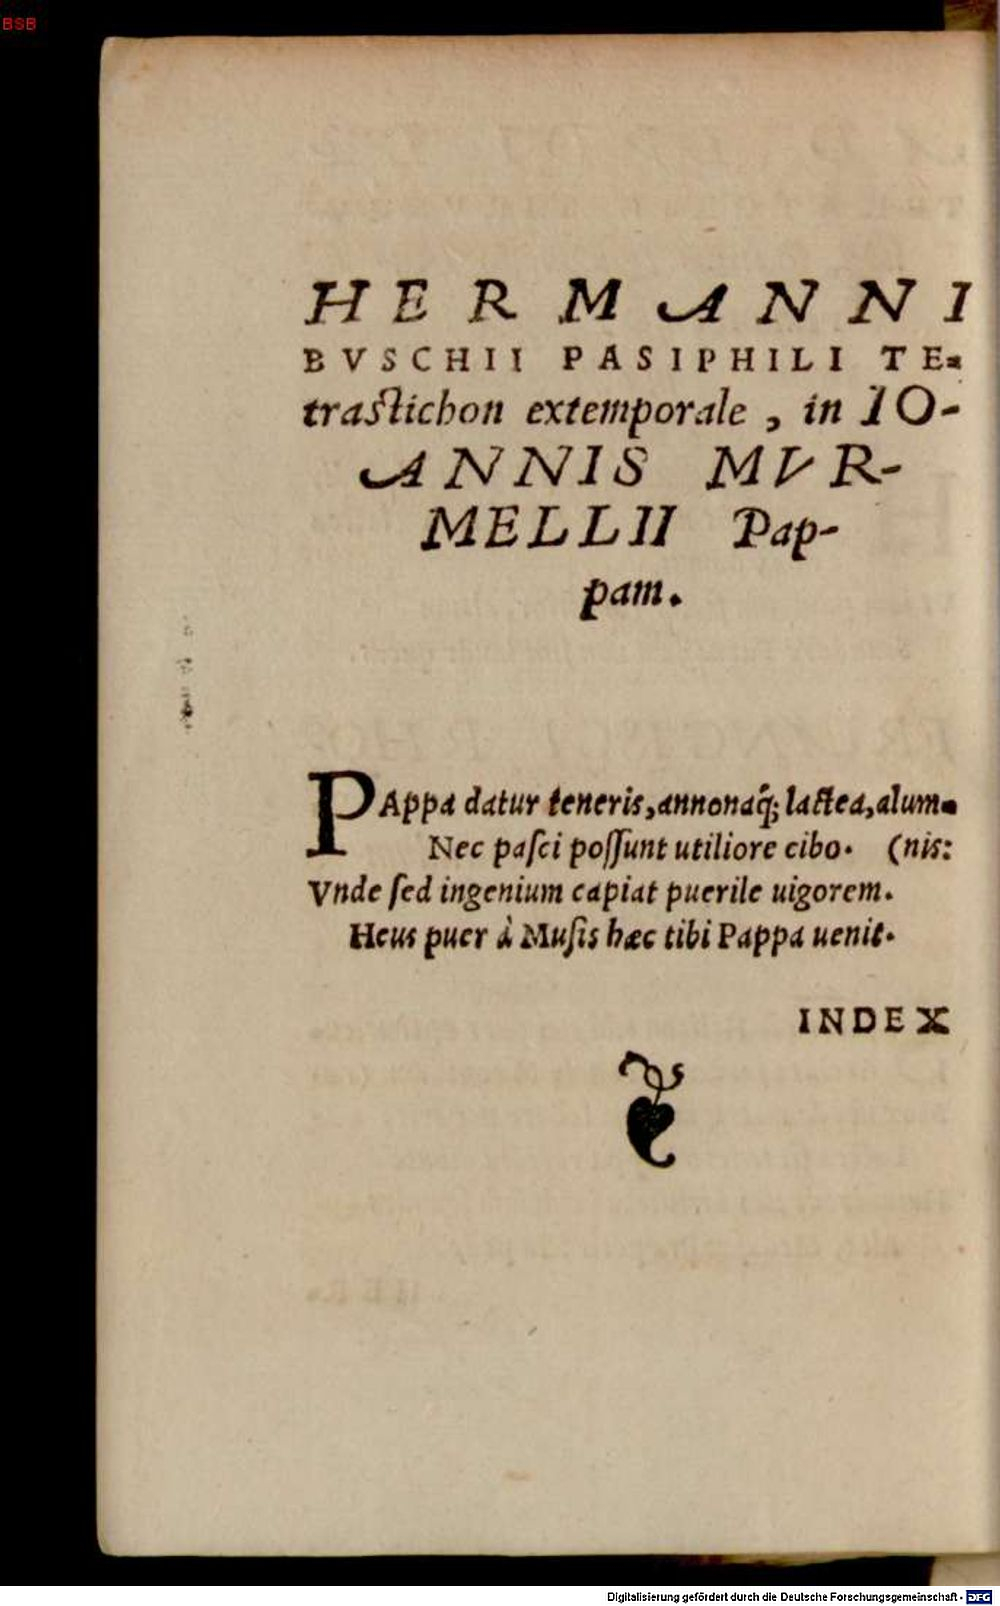 BSB
HERMANNI
BVSCHII PASIPHILI TE-
trastichon extemporale, in IO-
ANNIS MVR-
MELLII Pap-
pam.
PAppa datur teneris, annonaq́; lactea, alum-
Nec paſci poſſunt utiliore cibo. (nis:
Vnde ſed ingenium capiat puerile uigorem.
Heus puer à Muſis hæc tibi Pappa uenit.
INDEX
Digitalisierung gefördert durch die Deutsche Forschungsgemeinschaft - DFG